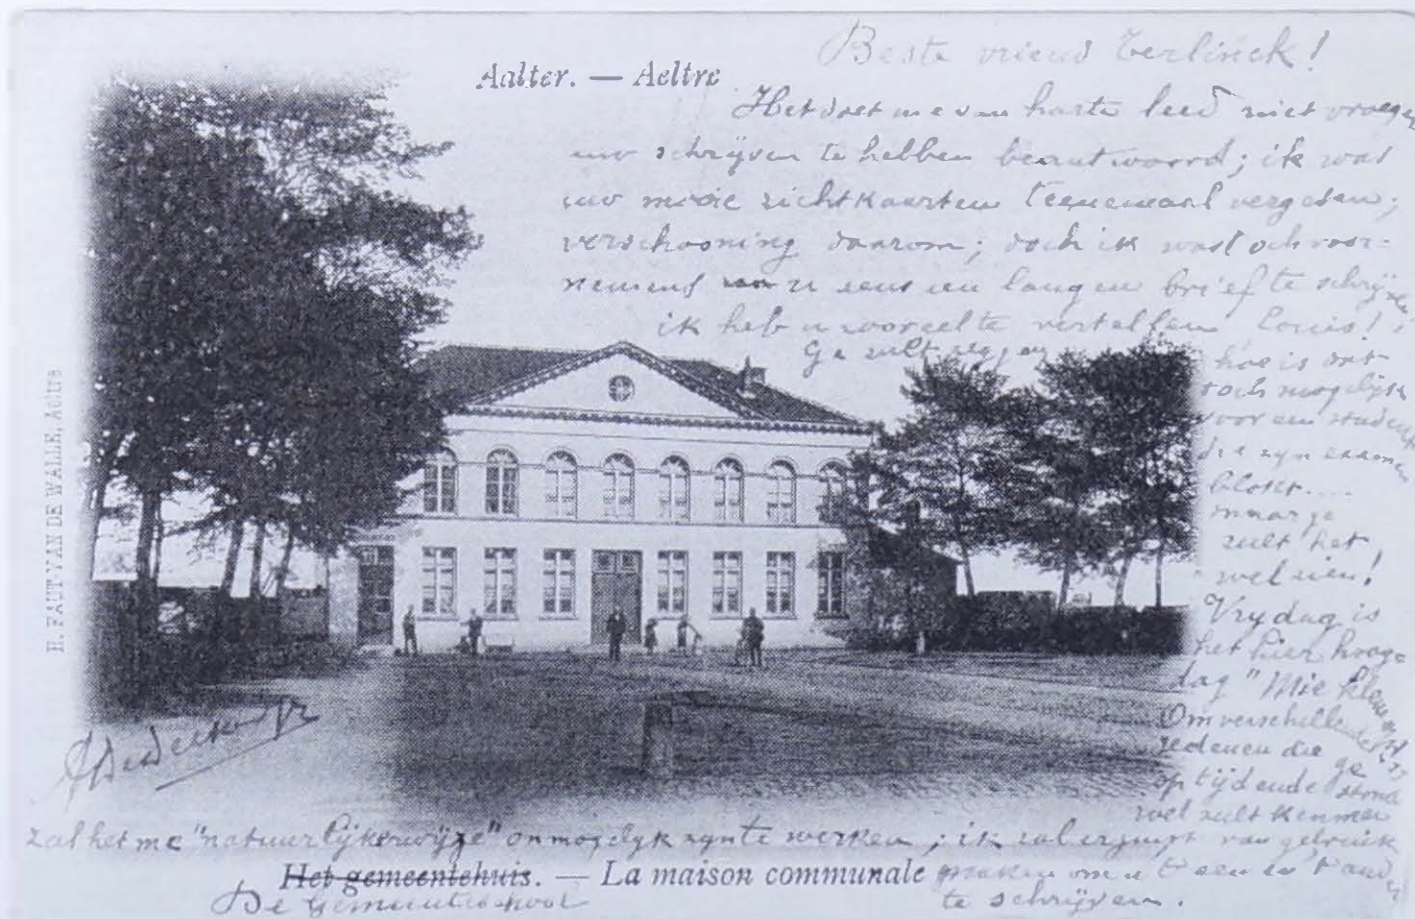 Aalter. — Aeltre
Beste vriend Terlinck!
Het doet me van harte leed niet vroeger
uw schrijven te hebben beantwoord; ik was
uw mooie zichtkaarten teenemaal vergeten;
verschooning daarom; doch ik was toch voor-
nemens u eens een langen brief te schrijven
ik heb u zooveel te vertellen Louis!
Ge zult zeggen
hoe is dat
toch mogelijk
voor een student
die zyn examen
blokt....
maar ge
zult het
wel zien!
Vrydag is
het hier hooge
dag "Mie
Om verschillende
redenen die ge
op tijd ende stond
wel zult kennen
zal het me "natuurlijkerwijze" onmogelyk zyn te werken; ik zal er van gebruik
maken om u 't een en 't ander
te schrijven.
Het gemeentehuis. — La maison communale
De Gemeenteschool
H. FAUT-VAN DE WALLE, Aeltre